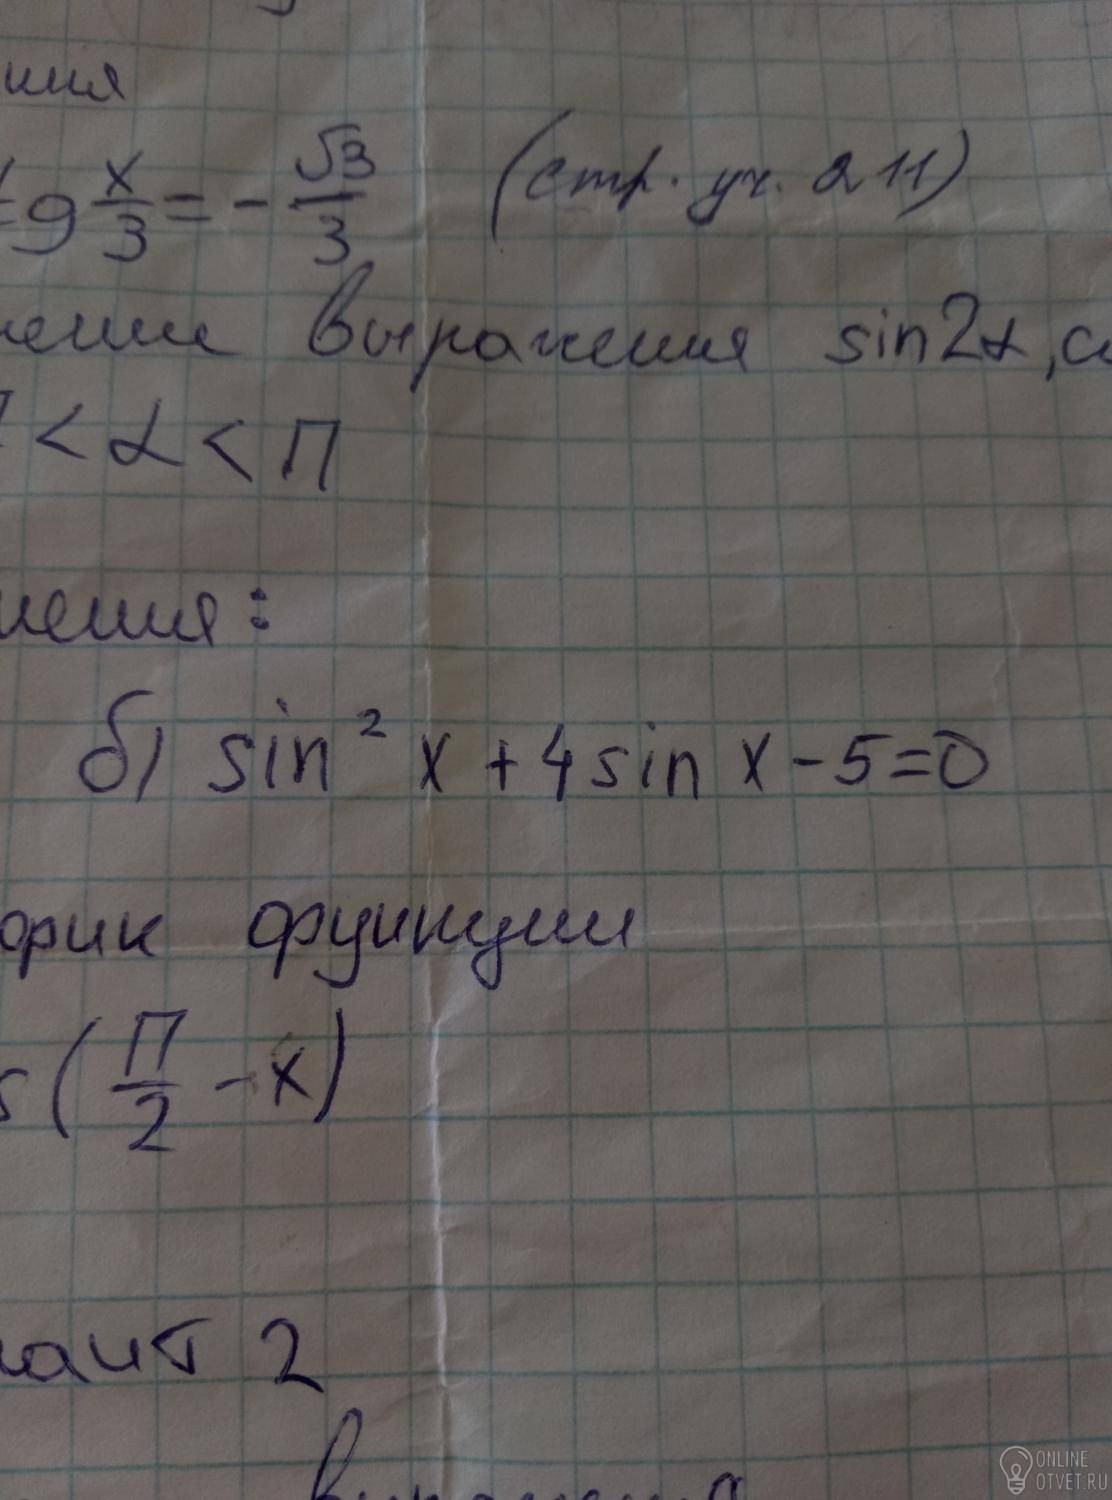 ния
tg x/3 = - √3/3 (стр. уч. 211)
чении выражения sin2α, с
< α < π
нения:
б) sin² x + 4 sin x - 5 = 0
фик функции
s(π/2 - x)
иант 2
выражения
ONLINE
OTVET.RU